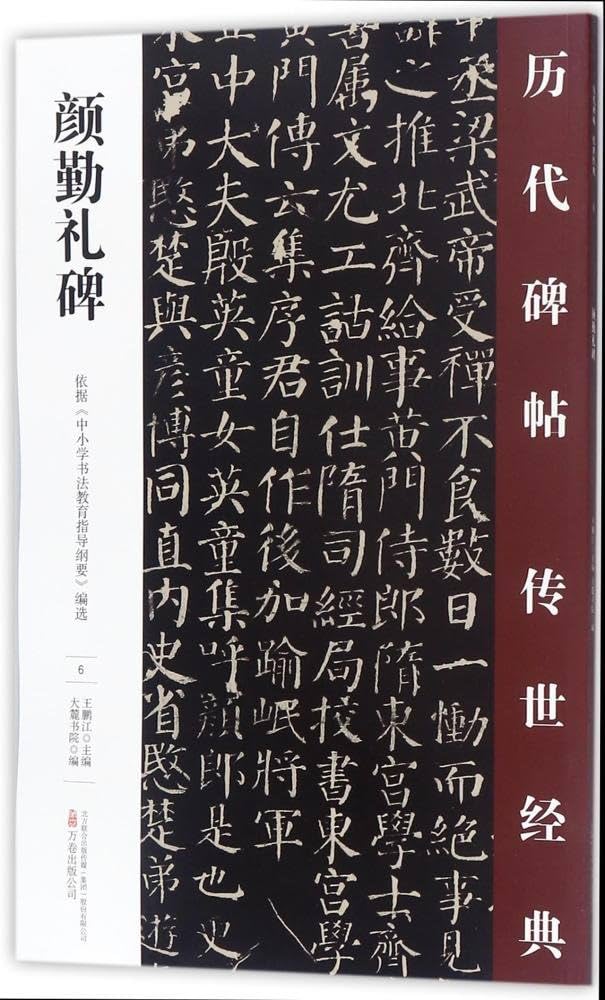 历代碑帖 传世经典
丞梁武帝受禪不食數日一慟而絕事見
之推北齊給事黃門侍郎隋東宮學士齊
書屬文尤工詁訓仕隋司經局挍書東宮學
黃門傳云集序君自作後加踰岷將軍
正中大夫殷英童女英童集呼顏郎是也更
宮弟愍楚與彥博同直內史省愍楚弟遊
颜勤礼碑
依据《中小学书法教育指导纲要》编选
6
王鹏江◎主编
大麓书院◎编
北方联合出版传媒（集团）股份有限公司
万卷出版公司